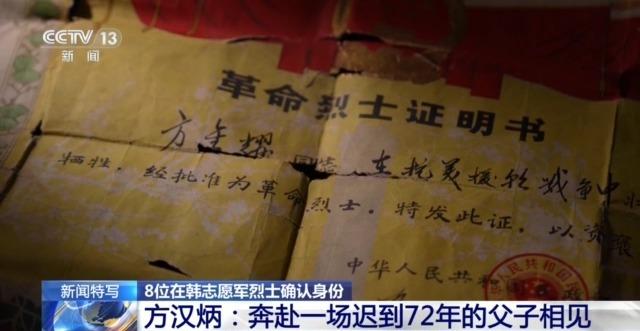 CCTV 13
新闻
革命烈士证明书
方金耀 同志 在抗美援朝战争中壮
牺牲，经批准为革命
烈士。特发此证，以资褒
中华人民共
人民共和国
新闻特写
8位在韩志愿军烈士确认身份
方汉炳：奔赴一场迟到72年的父子相见